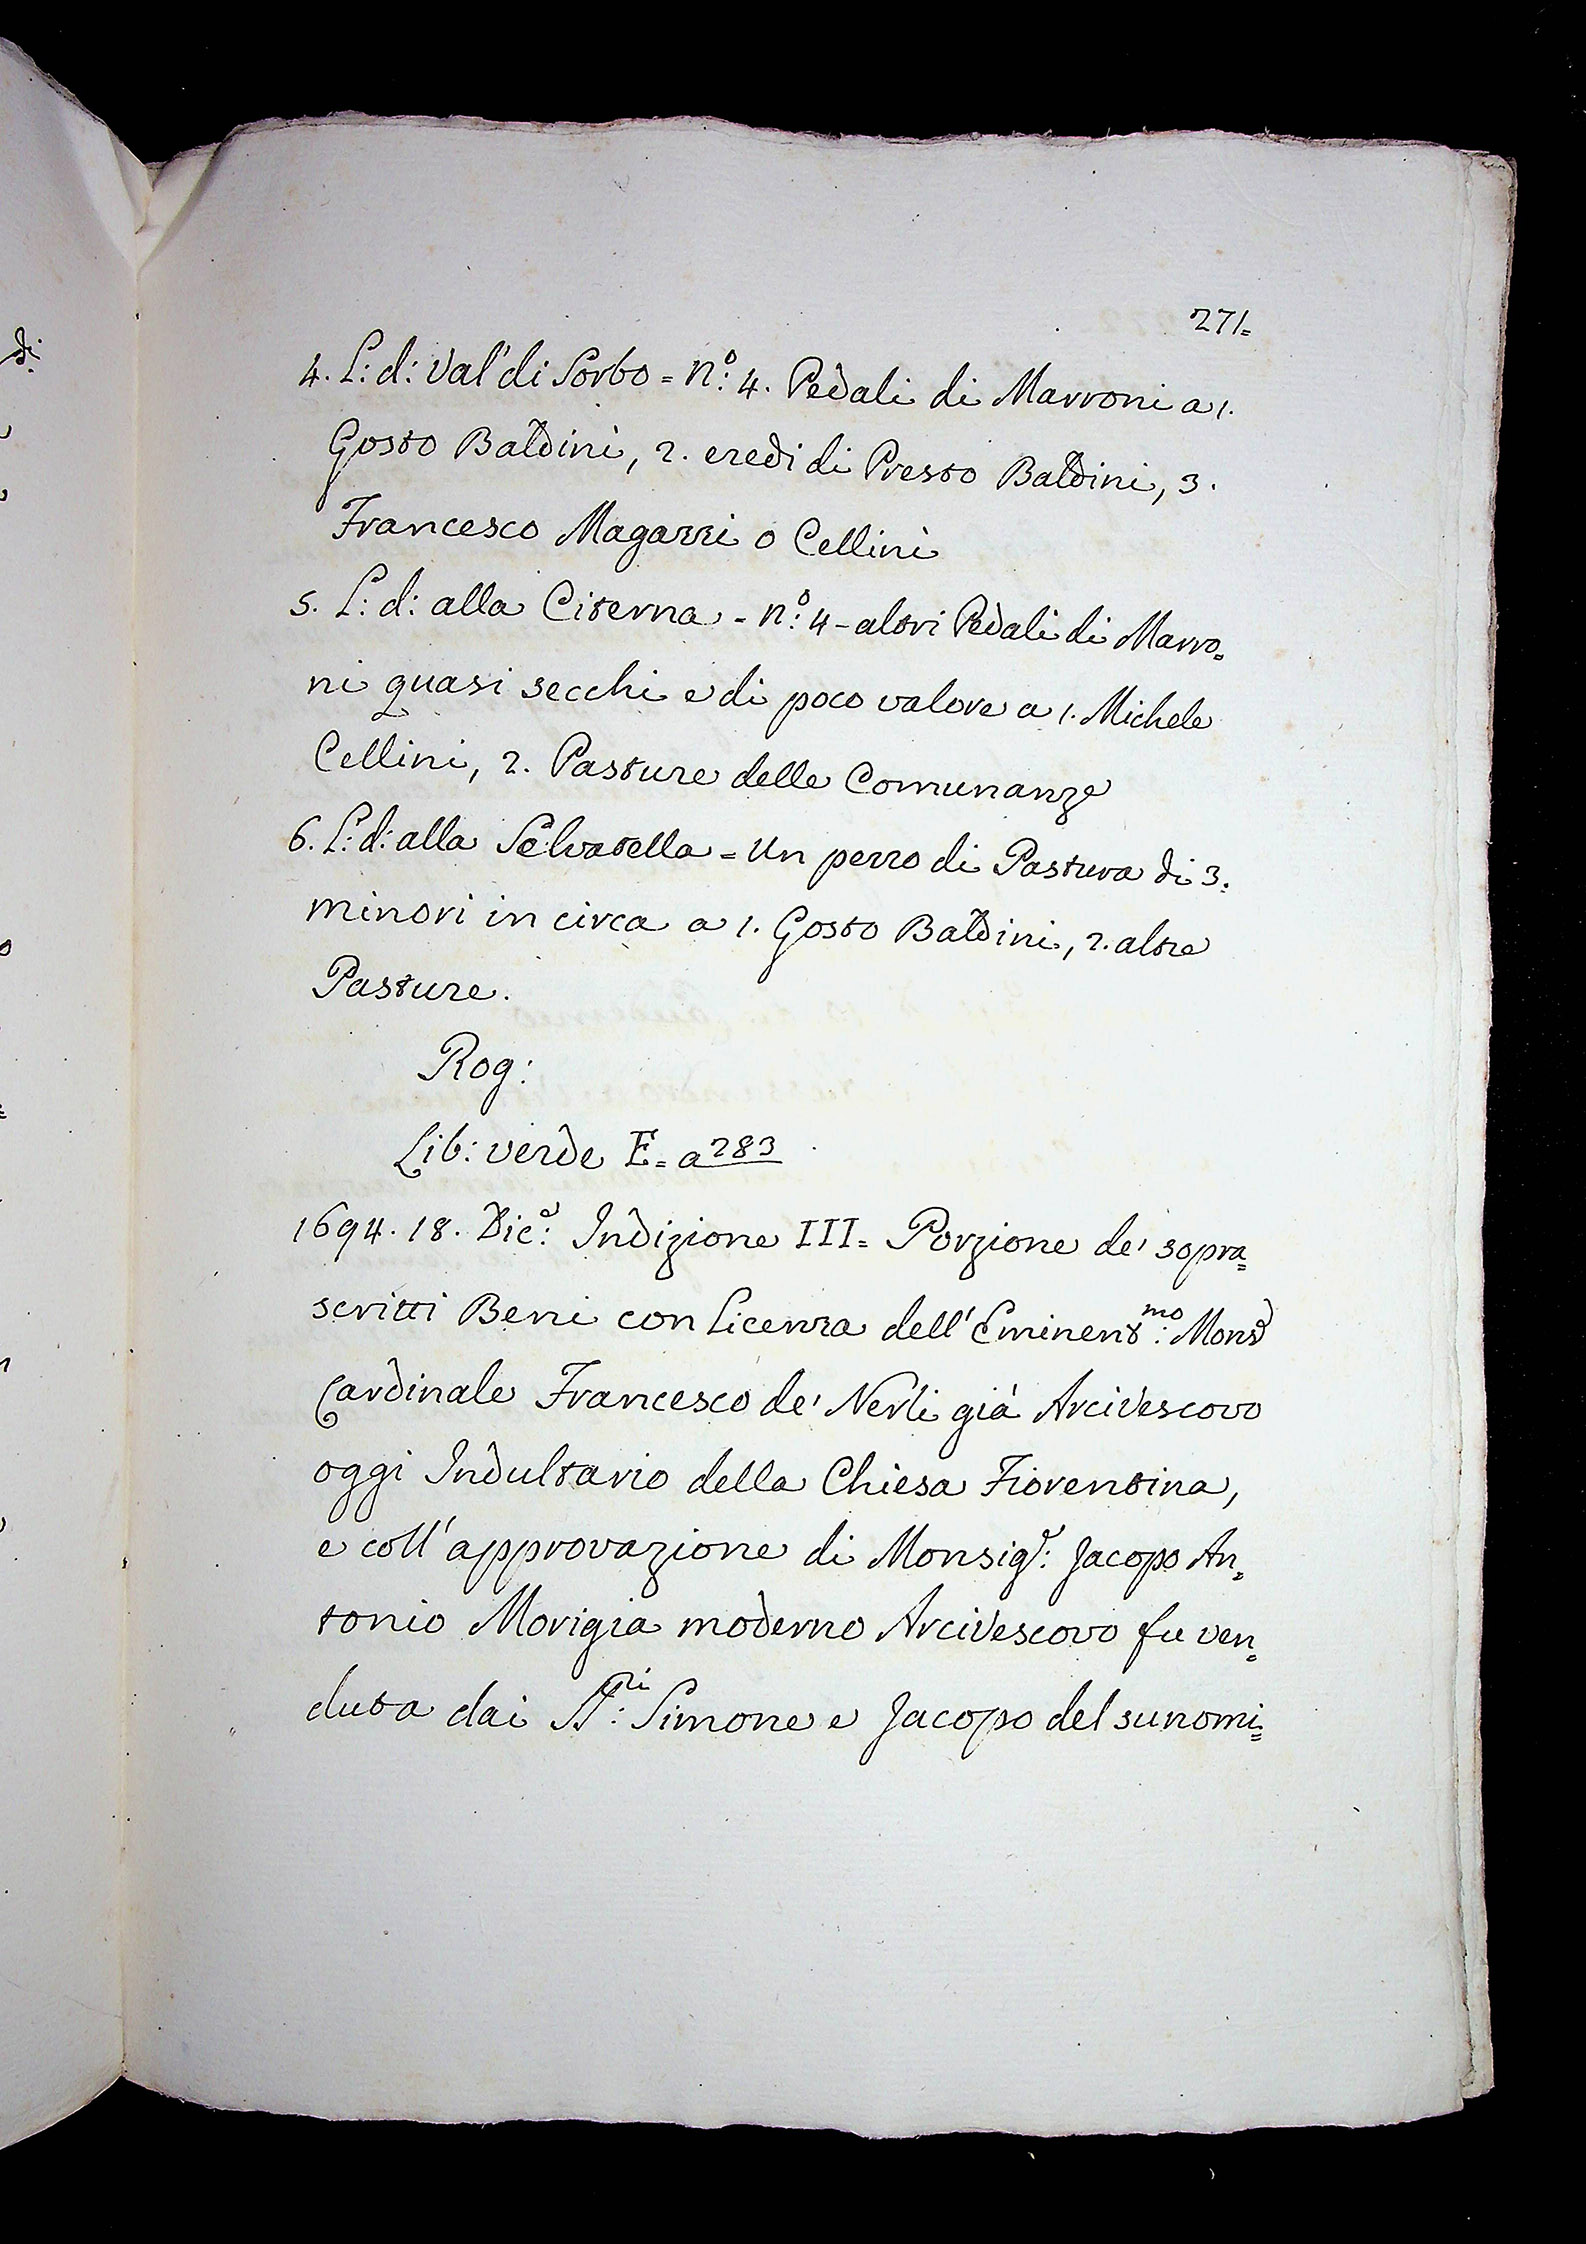 271=
4. L: d: Val' di Sorbo = n:º 4. Pedali di Marroni a 1.
Gosto Baldini, 2. eredi di Presto Baldini, 3.
Francesco Magazzi o Cellini
5. L: d: alla Citerna = n:º 4 - altri Pedali di Marro=
ni quasi secchi e di poco valore a 1. Michele
Cellini, 2. Pasture delle Comunanze
6. L: d: alla Selvatella = Un pezzo di Pastura di 3.
minori in circa a 1. Gosto Baldini, 2. altre
Pasture.
Rog:
Lib: verde E = a 283
1694. 18. Dic:e Indizione III = Porzione de' sopra=
scritti Beni con Licenza dell' Eminent:mo Monsr
Cardinale Francesco de' Nerli già Arcivescovo
oggi Indultario della Chiesa Fiorentina,
e coll' approvazione di Monsig:r Jacopo An=
tonio Morigia moderno Arcivescovo fu ven=
duta dai SS:ri Simone e Jacopo del sunomi=
di